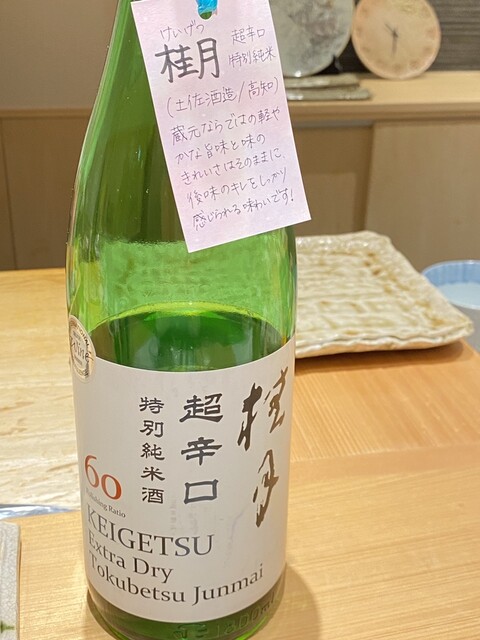 けいげつ
桂月
超辛口
特別純米
(土佐酒造/高知)
蔵元ならではの軽や
かな旨味と味の
きれいさはそのままに、
後味のキレをしっかり
感じられる味わいです!
桂月
超辛口
特別純米酒
60
Polishing Ratio
KEIGETSU
Extra Dry
Tokubetsu Junmai
1800ml